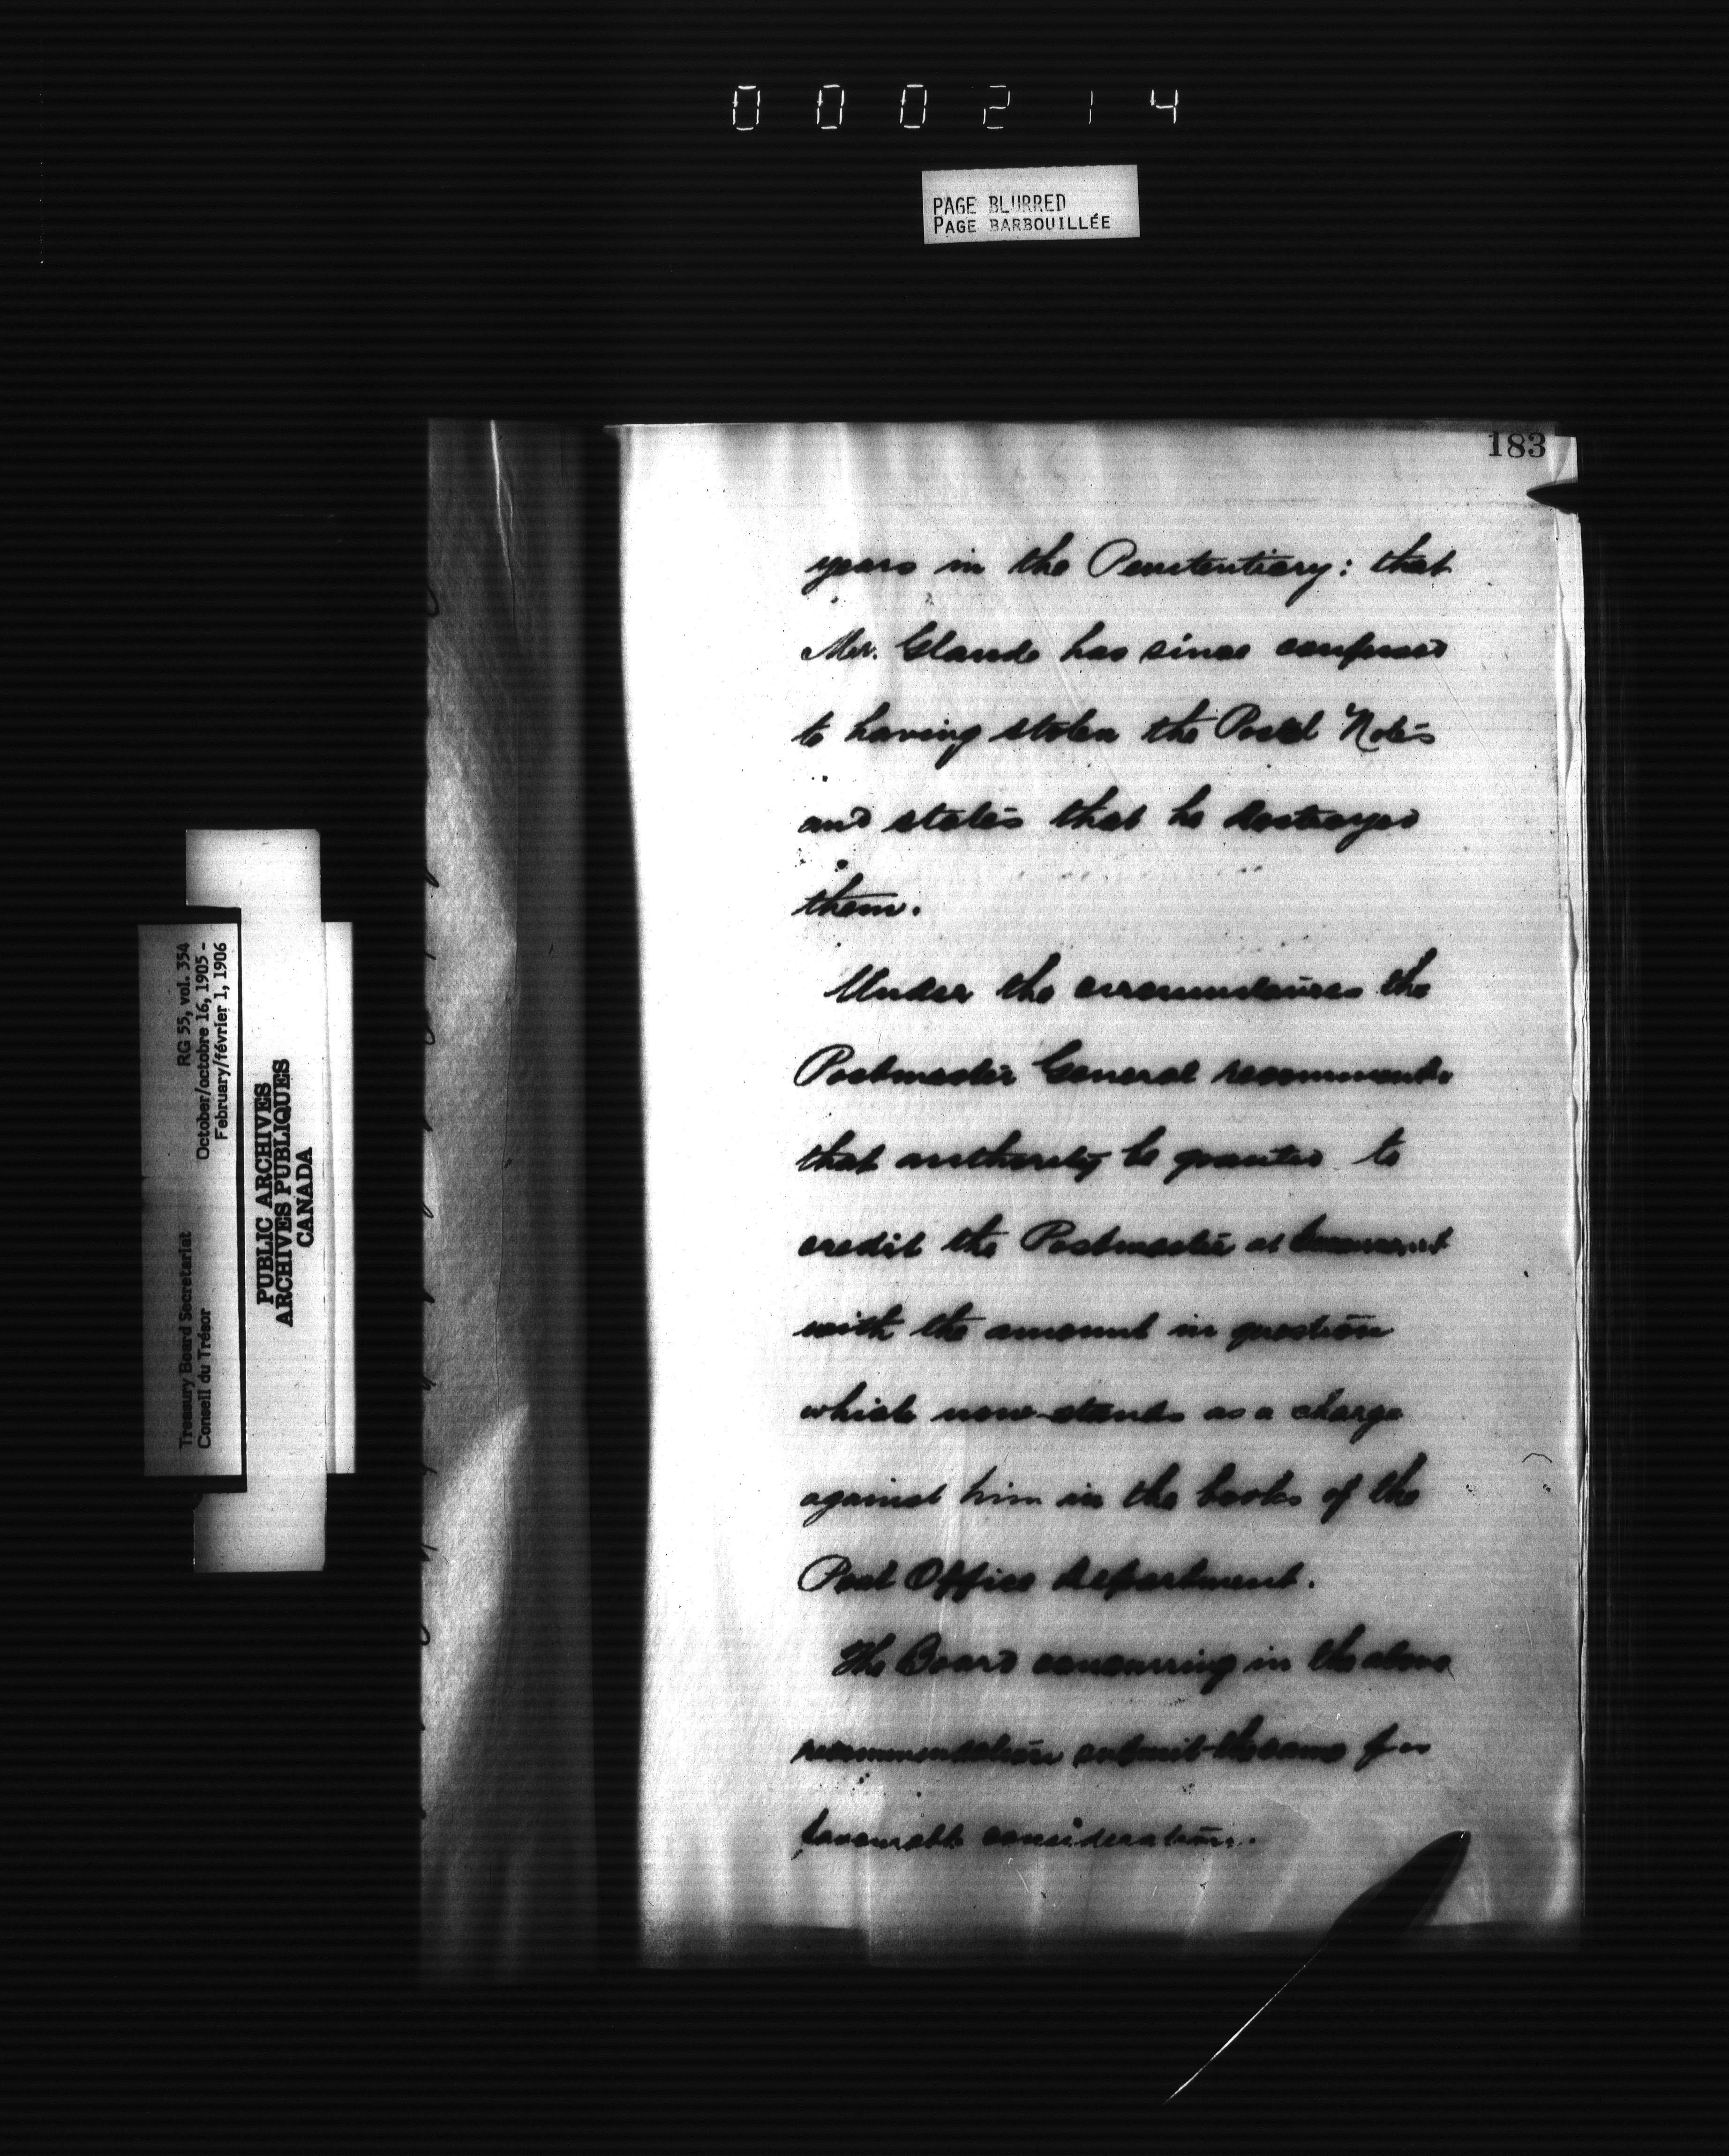 000214
PAGE BLURRED
PAGE BARBOUILLÉE
183
years in the Penitentiary: that
Mr. Glande has since confessed
to having stolen the Postal Notes
and states that he destroyed
them.
Under the circumstances the
Postmaster General recommends
that authority be granted to
credit the Postmaster at
with the amount in question
which now stands as a charge
against him in the books of the
Post Office Department.
The Board concurring in the above
recommendation submit the same for
favourable consideration.
Treasury Board Secretariat RG 55, vol. 354
Conseil du Trésor October/octobre 16, 1905 -
February/février 1, 1906
PUBLIC ARCHIVES
ARCHIVES PUBLIQUES
CANADA